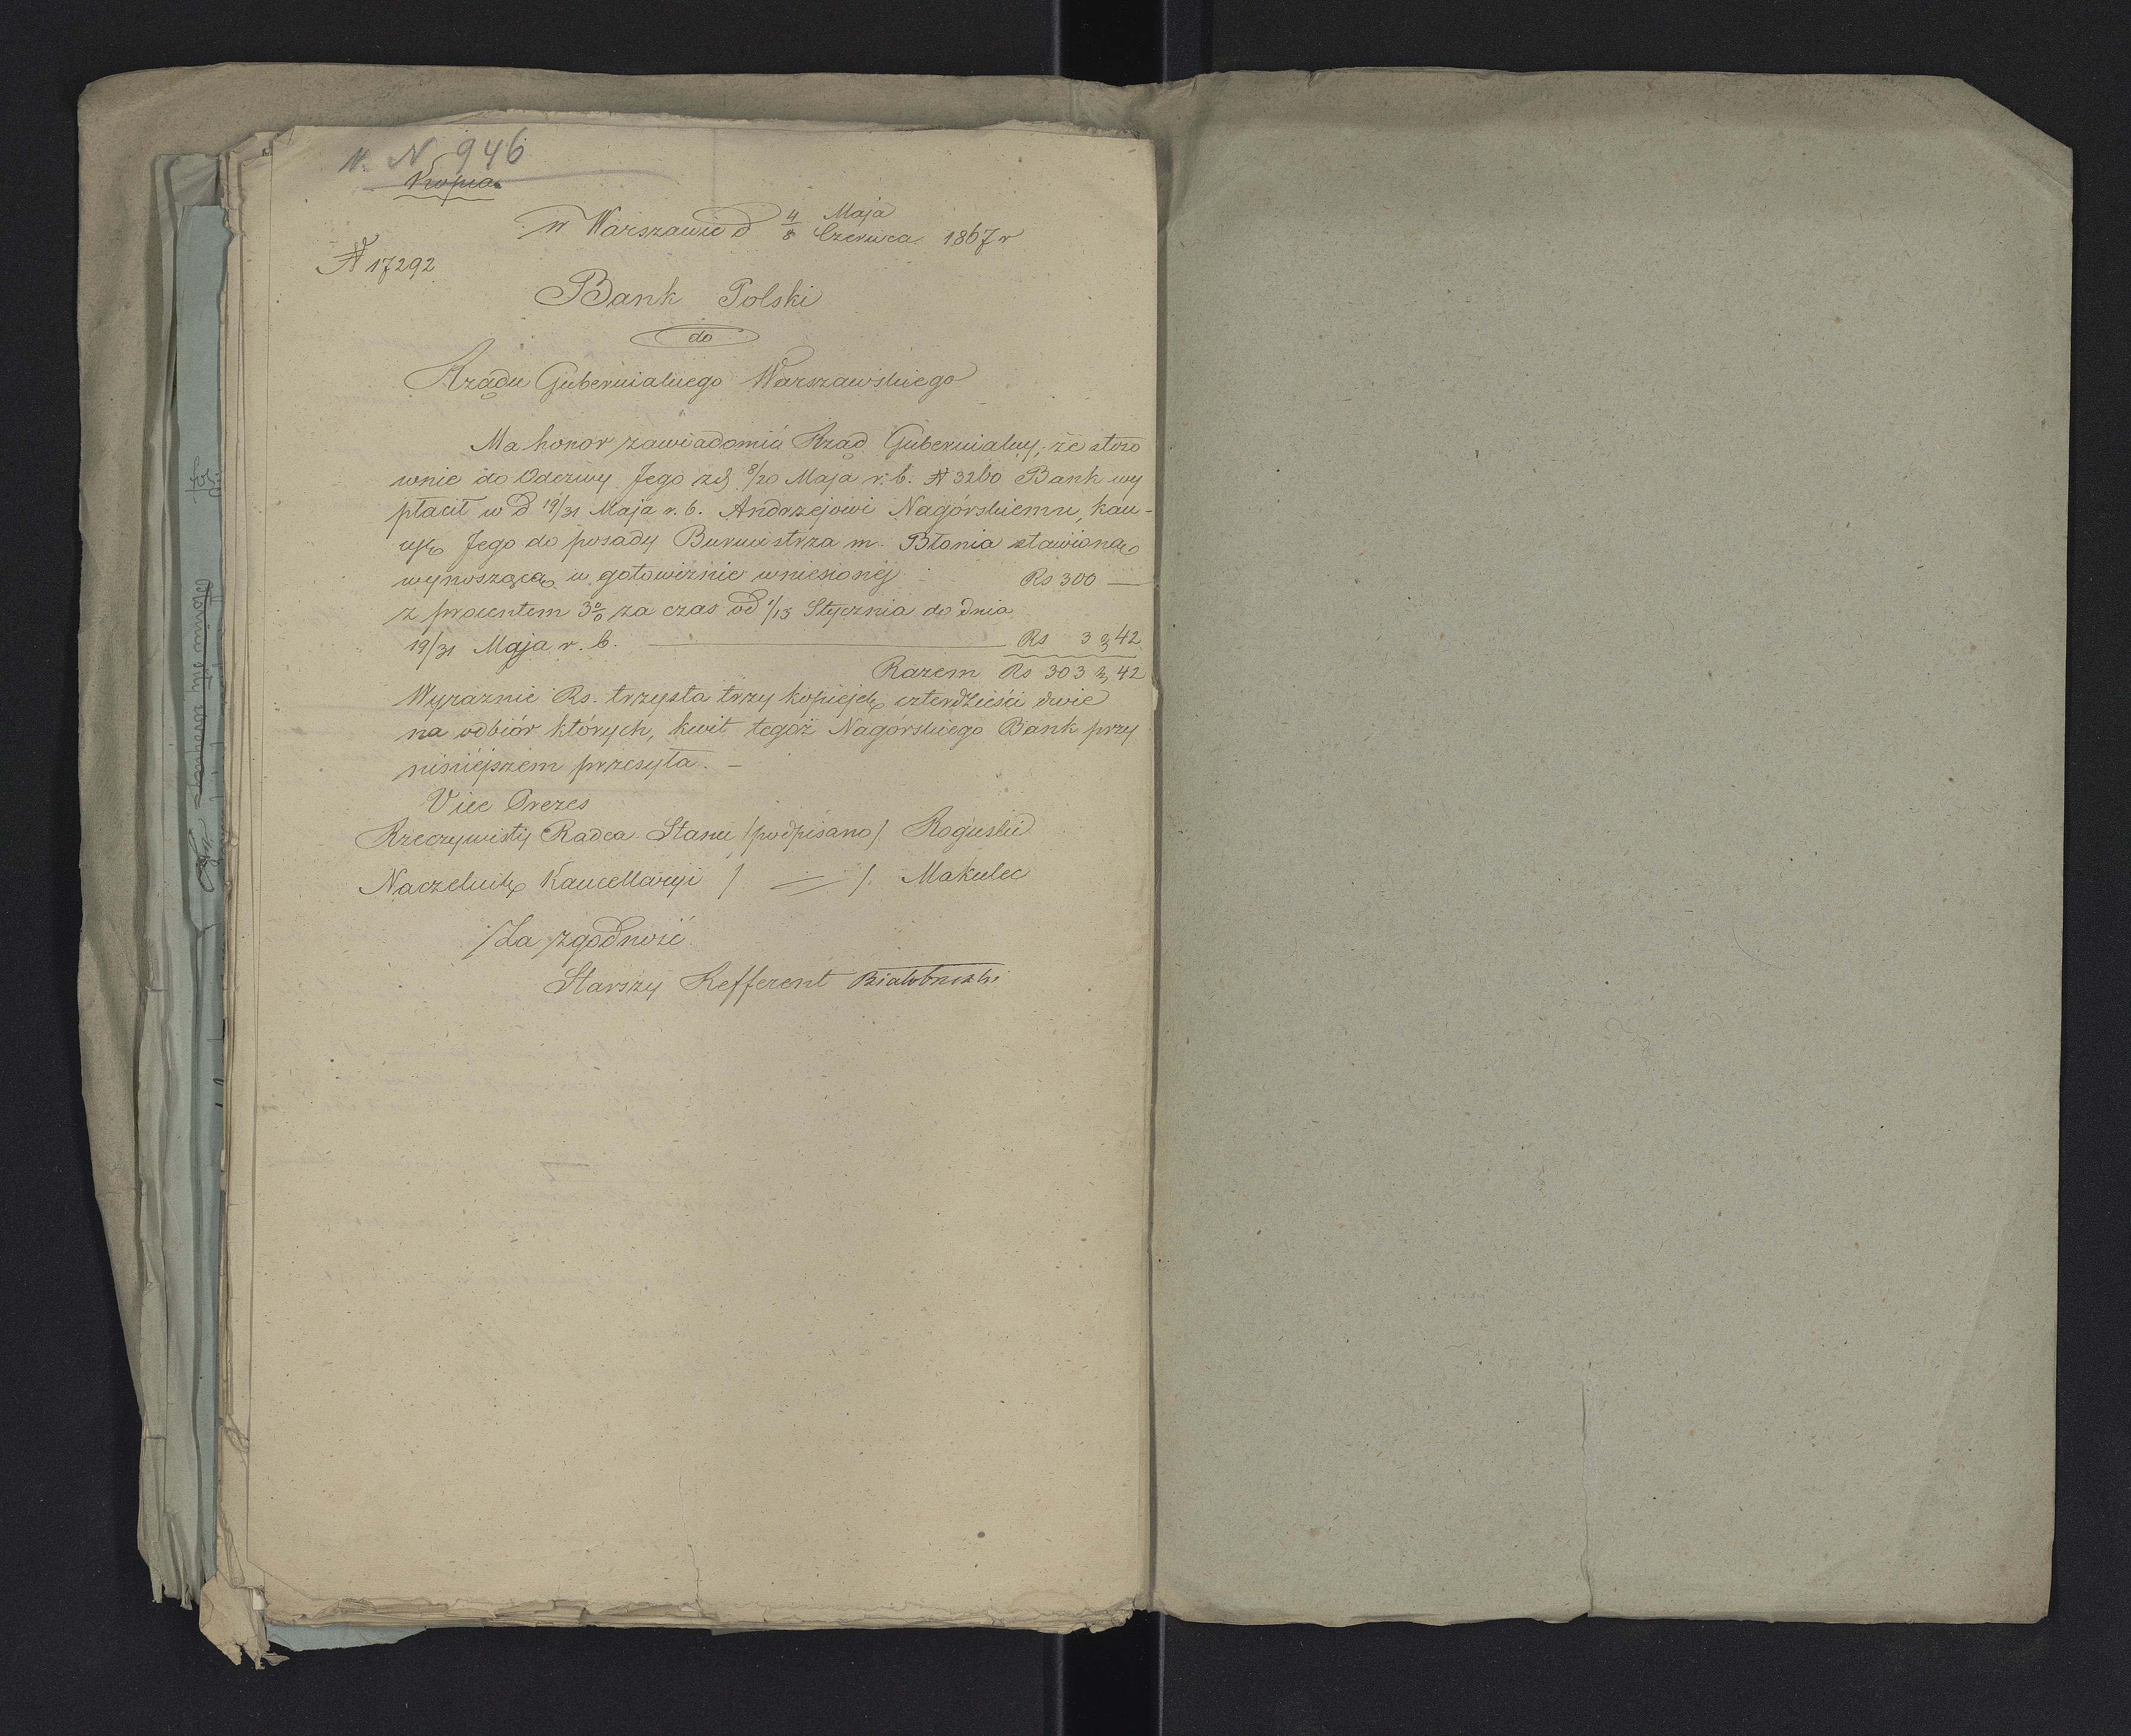 N. N 946
Kopia
w Warszawie d 4/8 Maja/Czerwca 1867 r
№ 17292
Bank Polski
do
Rządu Gubernialnego Warszawskiego
Ma honor zawiadomić Rząd Gubernialny, że stoso
wnie do Odezwy Jego z d 8/20 Maja r. b. № 3260 Bank wy
płacił w d 19/31 Maja r. b. Andrzejowi Nagórskiemu, kau-
cyę Jego do posady Burmistrza m. Błonia stawioną
wynoszącą w gotowiznie wniesionej Rs 300 —
z procentem 3% za czas od 1/13 Stycznia do dnia
19/31 Maja r. b. — Rs 3 k 42
Razem Rs 303 k 42
Wyraznie Rs. trzysta trzy kopiejek czterdzieści dwie
na odbiór których, kwit tegoż Nagórskiego Bank przy
niniéjszem przesyła. —
Vice Prezes
Rzeczywisty Radca Stanu /podpisano/ Roguski
Naczelnik Kancellaryi / — /. Makulec
Za zgodność
Starszy Refferent Białobrzski